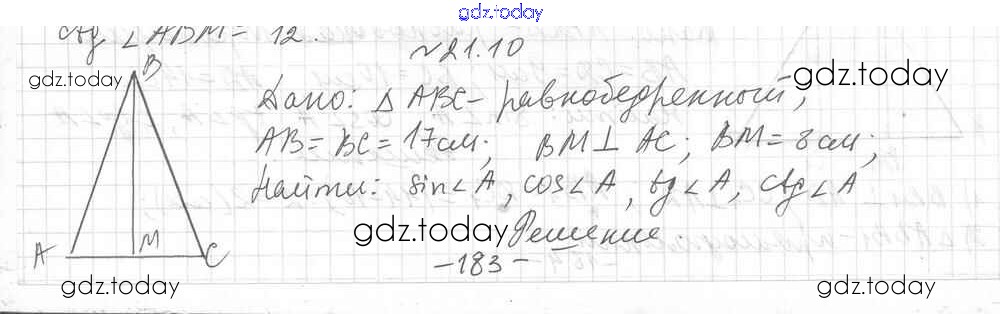 gdz.today
ctg ∠ABM = 12.
№21.10
B
gdz.today
gdz.today
Дано: △ ABC - равнобедренный,
AB = BC = 17см; BM ⊥ AC; BM = 8 см;
Найти: sin∠A, cos∠A, tg∠A, ctg∠A
gdz.today
Решение.
A M C
-183-
gdz.today
gdz.today